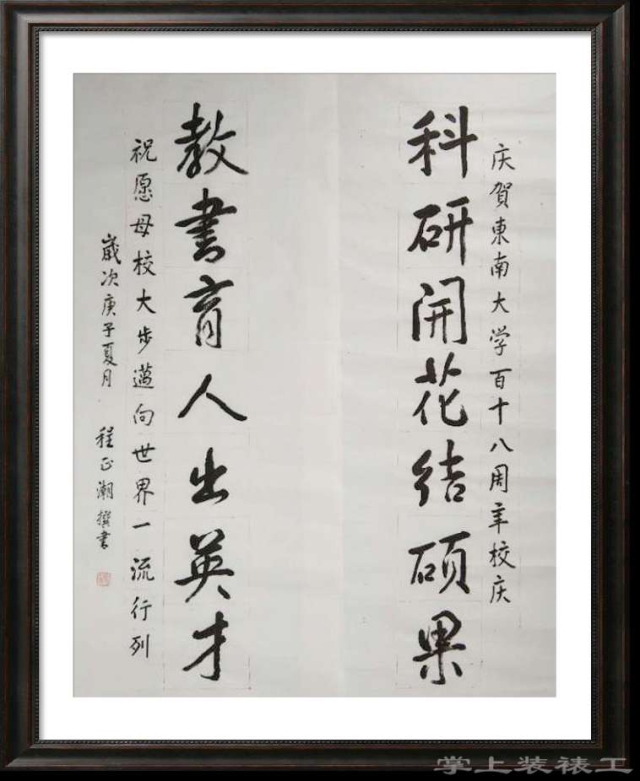 庆贺東南大学百十八周年校庆
科研開花结硕果
教書育人出英才
祝愿母校大步邁向世界一流行列
嵗次庚子夏月
程正潮撰書
掌上装裱工